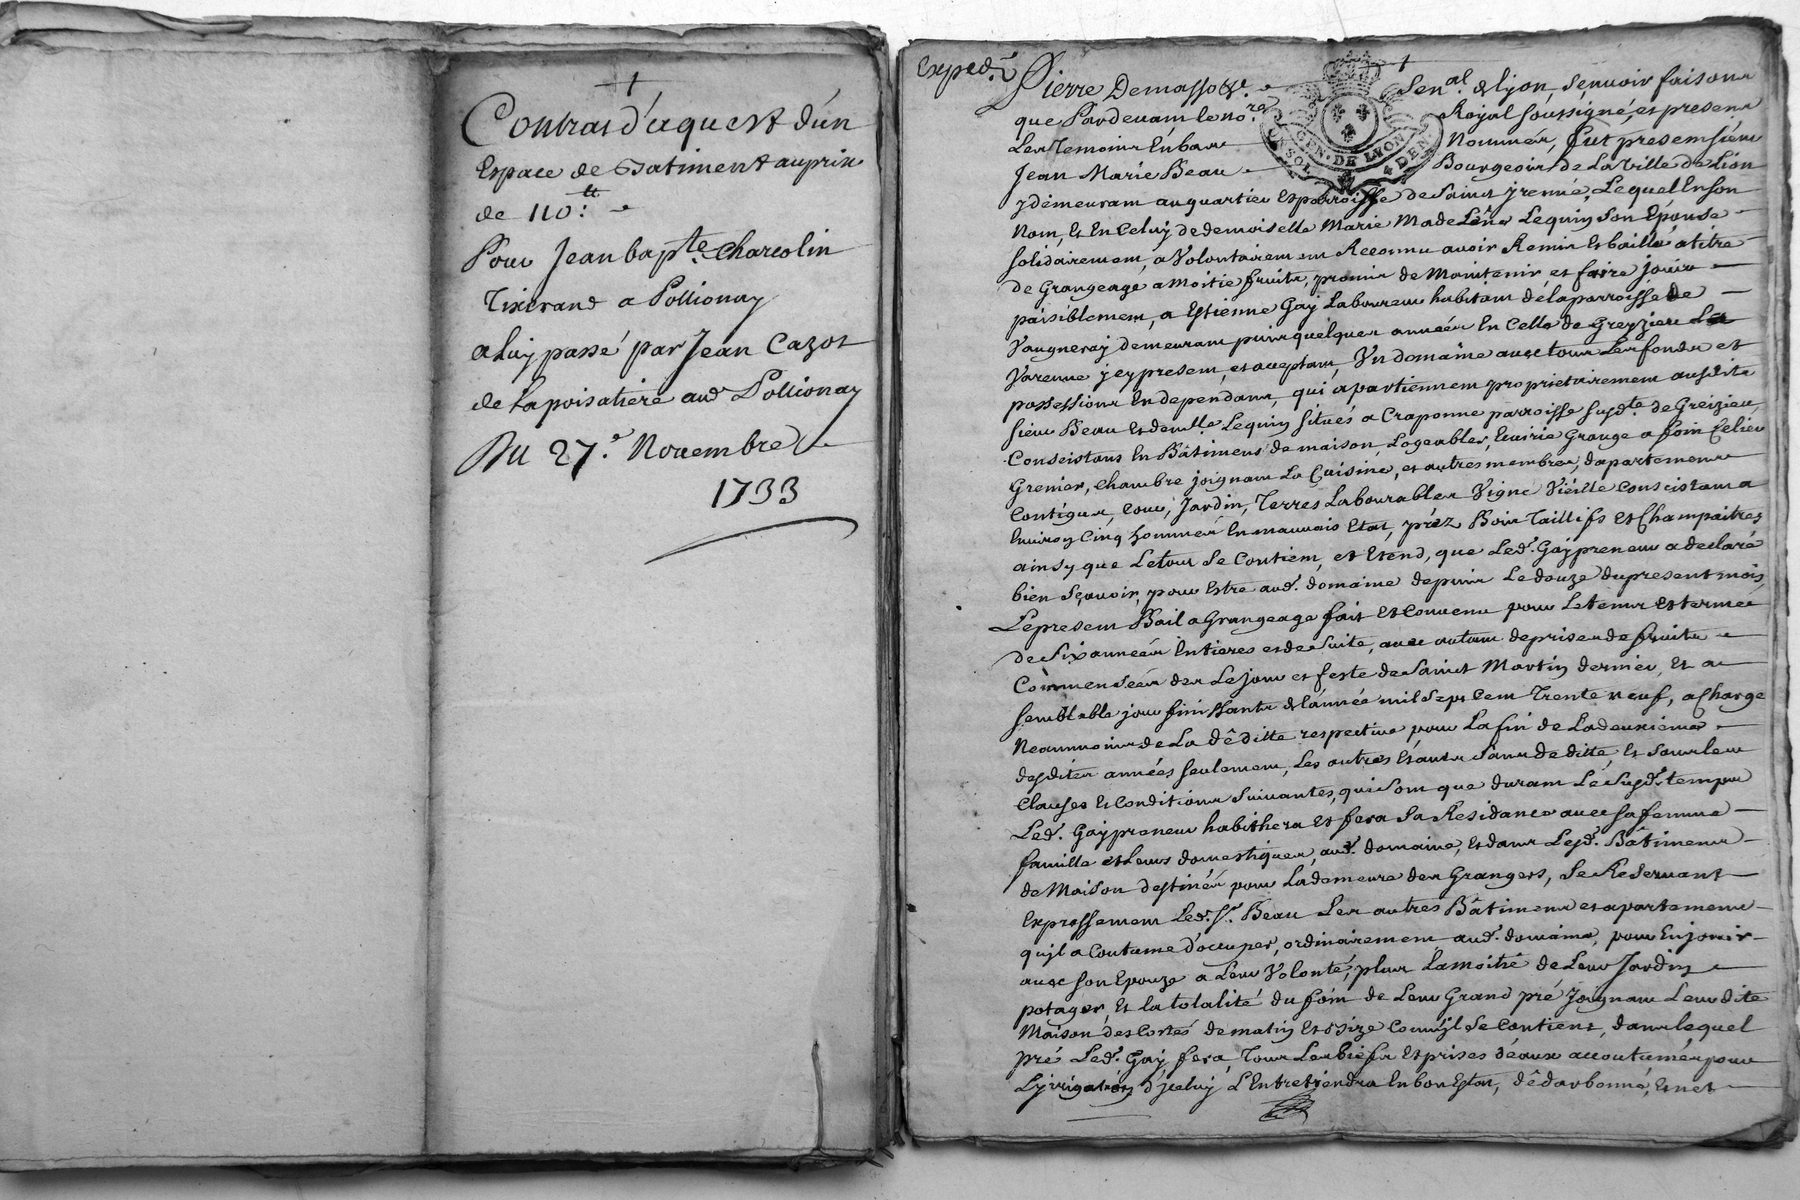 Contrat d'aquest d'un
Espace de Batiment au prix
de 110:tt
Pour Jean bapte. Charcolin
Tixerand a Pollionay
a Luy passé par Jean Cazot
de Lapoisatiere aud Pollionay
Du 27e. Novembre
1733
Exped.é
Pierre Demasso &c. Sen.al de lyon, Scavoir faisons
que Pardevant le no.re Royal soussigné, et presens
Les Temoins En bas Nommés, fut present sieur
Jean Marie Beau Bourgeois de La Ville de Lion
GEN. DE LYON
UN SOL 4 DEN
y demeurant au quartier et parroisse de Saint Jrenné, Lequel En son
Nom, et En Celuy de demoiselle Marie Madelene Lequin Son Epouse
solidairement, a Volontairement Reconnu avoir Remis et baillé a titre
de Grangeage a Moitié fruits, promis de Maintenir et faire jouir
paisiblement, a Estienne Gay Laboureur habitant de la parroisse de
Vaugneray demeurant puis quelques années En Celle de Greyzieu La
Varenne j cy present, et acceptant, Un domaine avec tous Les fonds et
possessions En dependans, qui apartiennent proprietairement ausdits
sieur Beau et demlle Lequin situés a Craponne parroisse susd.te de Greizieu,
Conscistans En Bâtimens de maison, Logeables, Ecurie Grange a foin Celier
Grenier, chambre joignant La Cuisine, et autres membres, d'apartemens
Contigus, Cour, Jardin, Terres Labourables Vigne Vieille conscistant a
Environ Cinq hommés En mauvais Etat, préz Bois Taillifs et Champaitres
ainsy que Le tout se Contient, et Etend, que Led. Gay preneur a declaré
bien sçavoir, pour Estre aud. domaine depuis Le douze du present mois,
Le present Bail a Grangeage fait et Convenu pour Le tems et terme
de Six années Entieres et de suite, avec autant de prises de fruits
Commencées des Le jour et feste de Saint Martin dernier, et a
semblable jour finissante de l'année mil sept Cent Trente neuf, a Charge
Neanmoins de La dêditte respective pour La fin de La deuxieme
desdites années seulement, Les autres Etants sans deditte, Et sous les
Clauses et conditions suivantes, qui sont que durant Le susd. temps
Led. Gay preneur habithera et fera sa Residance avec sa femme
famille et Leurs domestiques, aud. domaine, et dans Lesd. Bâtimens
de Maison destinés pour La demeure des Grangers, Se Reservant
Expressement Led. Sr. Beau Les autres Bâtimens et apartemens
qu'jl a Coutume d'occuper, ordinairement aud. domaine, pour En jouir
avec son Epouze a Leur Volonté, plus La moitié de Leur Jardin
potager, Et la totalité du foin de Leur Grand pré Joignant Leurdite
Maison des Cortés de matin Et Bize Comm'jl se Contient, dans lequel
pré Led. Gay fera Tous Les biefs Et prises d'eaux accoutumées pour
L'jrrigation d'jceluy, L'Entretiendra En bon Estat, dêdarbonné, et net